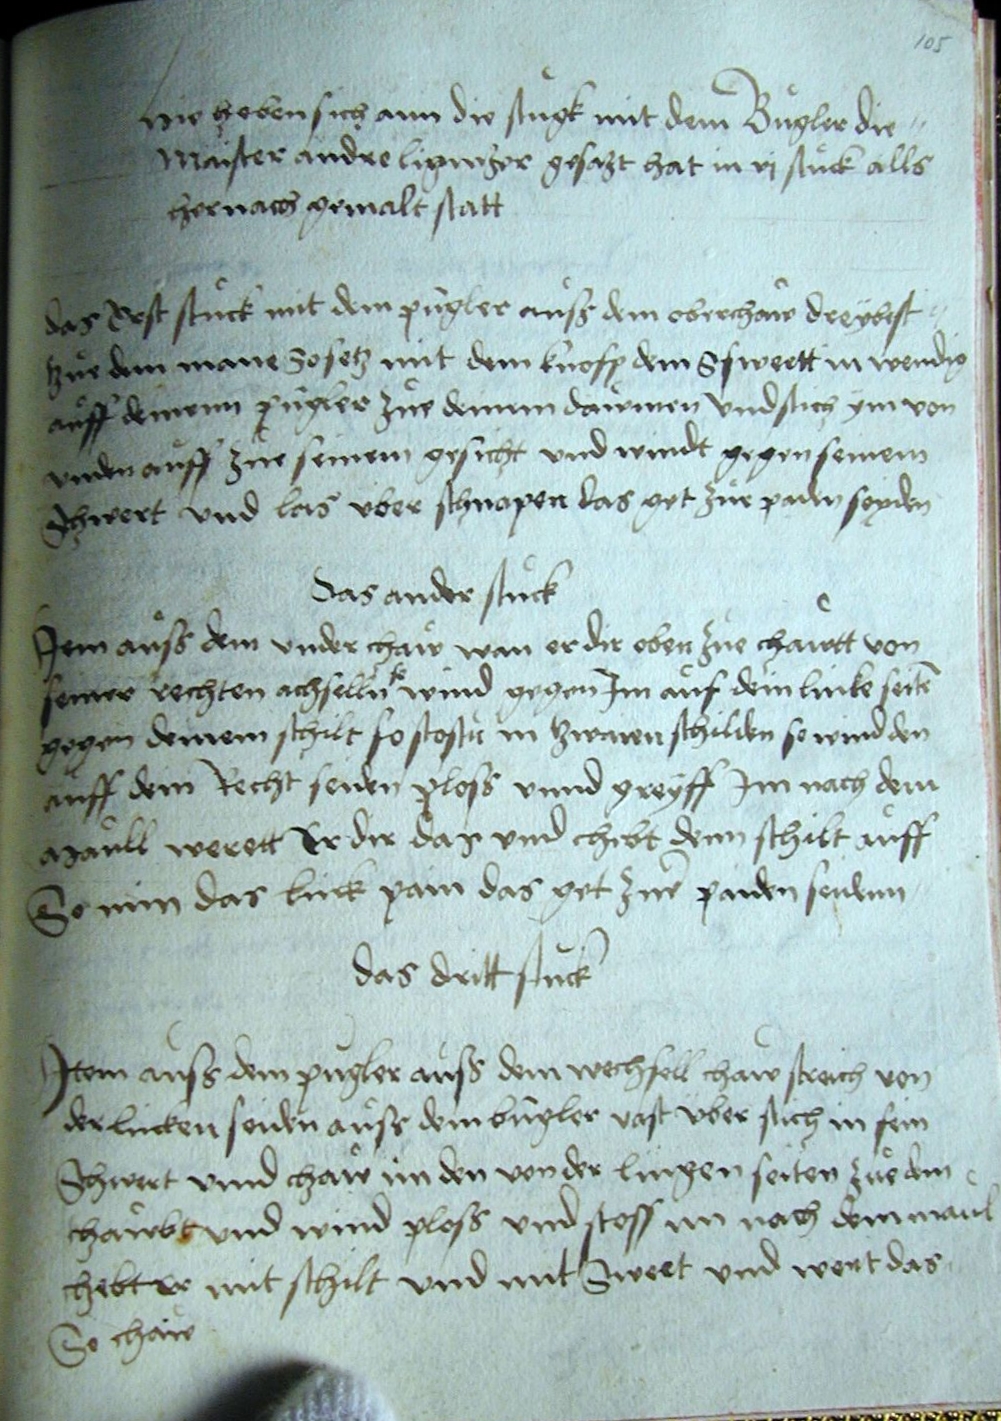 105
Hie heben sich ann die stugk mit dem Bugler die
Maister andre lignitzer gesatzt hat in vj stuck alls
hernach gemalt statt
das Erst stuck mit dem pugler auss dem oberhaw dreybest
tzue dem mane So setz mit dem knopf dein Schwertt in wendig
auff deinenn pugler zue deinem dawmen vnd stich ym von
vnden auff zue seinem gesicht vnd windt gegen seinem
Schwert vnd las vber schnapen das get zue paiden seyden
Das ander stuck
Item auss dem vnder chaw wan er dir oben zue chawtt von
seiner rechten achselln wind gegen Im auf dein linke seiten
gegen deinem schilt so stostu in tzwaien schilden so wind den
auff dein Recht seiden ploss vnnd greyff Im nach dem
maull werett Er dir daz vnd hebt denn schilt auff
So nim das linck pain das get zue paiden seidenn
das dritt stuck
Item auss dem pugler auss dem wechsell chaw streich von
der lincken seiden auss dem bugler vast vber sich in sein
Schwert vnnd chaw im den von der lingen seiten zue dem
chawbt vnd wind ploss vnd stoss im nach dem maul
hebt er mit schilt vnd mit Swert vnd wert das
So chaw